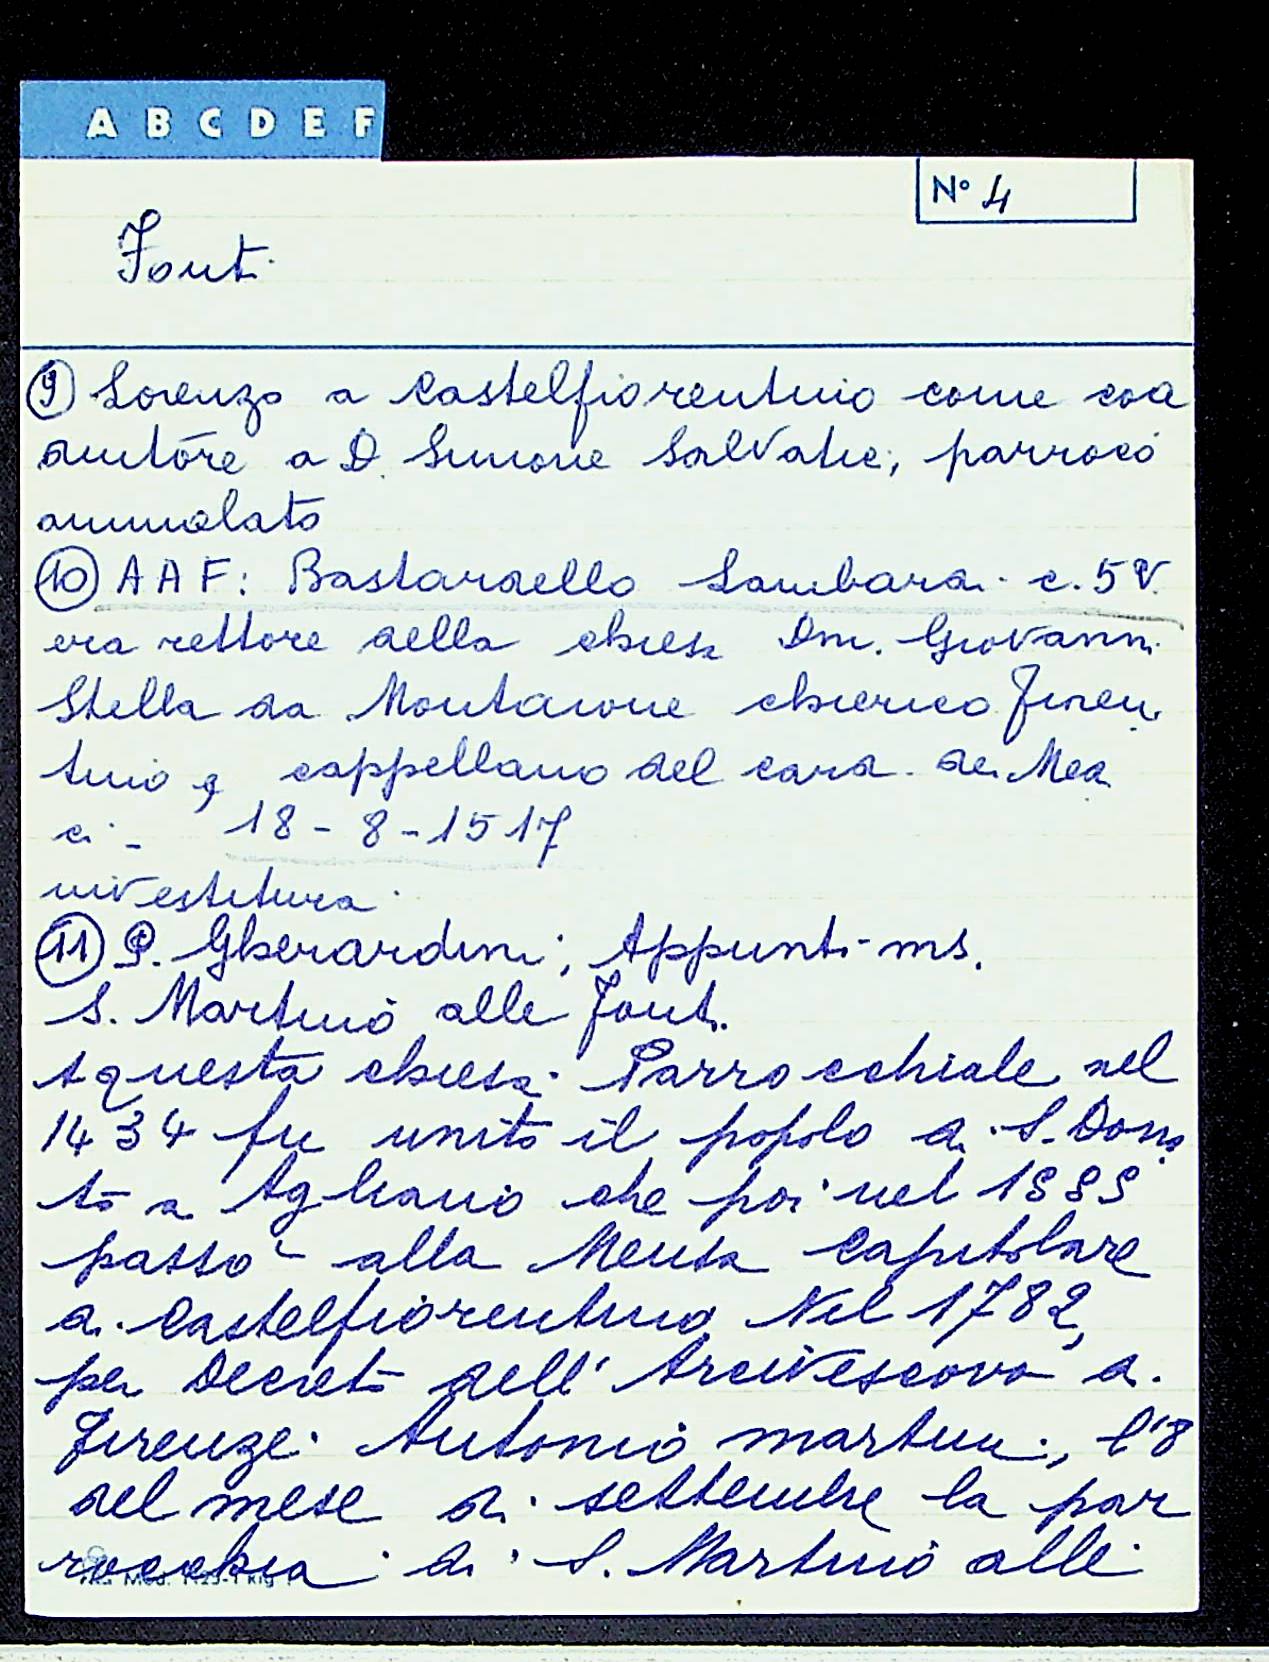 A B C D E F
Nº 4
Font.
⑨ Lorenzo a Castelfiorentino come coa
diutore a D. Simone Salvatic, parroco
ammalato
⑩ A A F: Bastardello Lombardi c. 5 v.
era rettore della chiesa Dm. Giovanni
Stella da Montaione chierico fioren
tino e cappellano del card. dei Med
ici - 18-8-1517
investitura.
⑪ P. Gherardini; Appunti ms.
S. Martino alle Font.
A questa chiesa Parrocchiale nel
1434 fu unito il popolo di S. Dona
to a Agliano che poi nel
passò alla Mensa Capitolare
di Castelfiorentino Nel 1782,
per Decreto dell'Arcivescovo di
Firenze Antonio Martini, l'8
del mese di settembre la par
rocchia di S. Martino alle